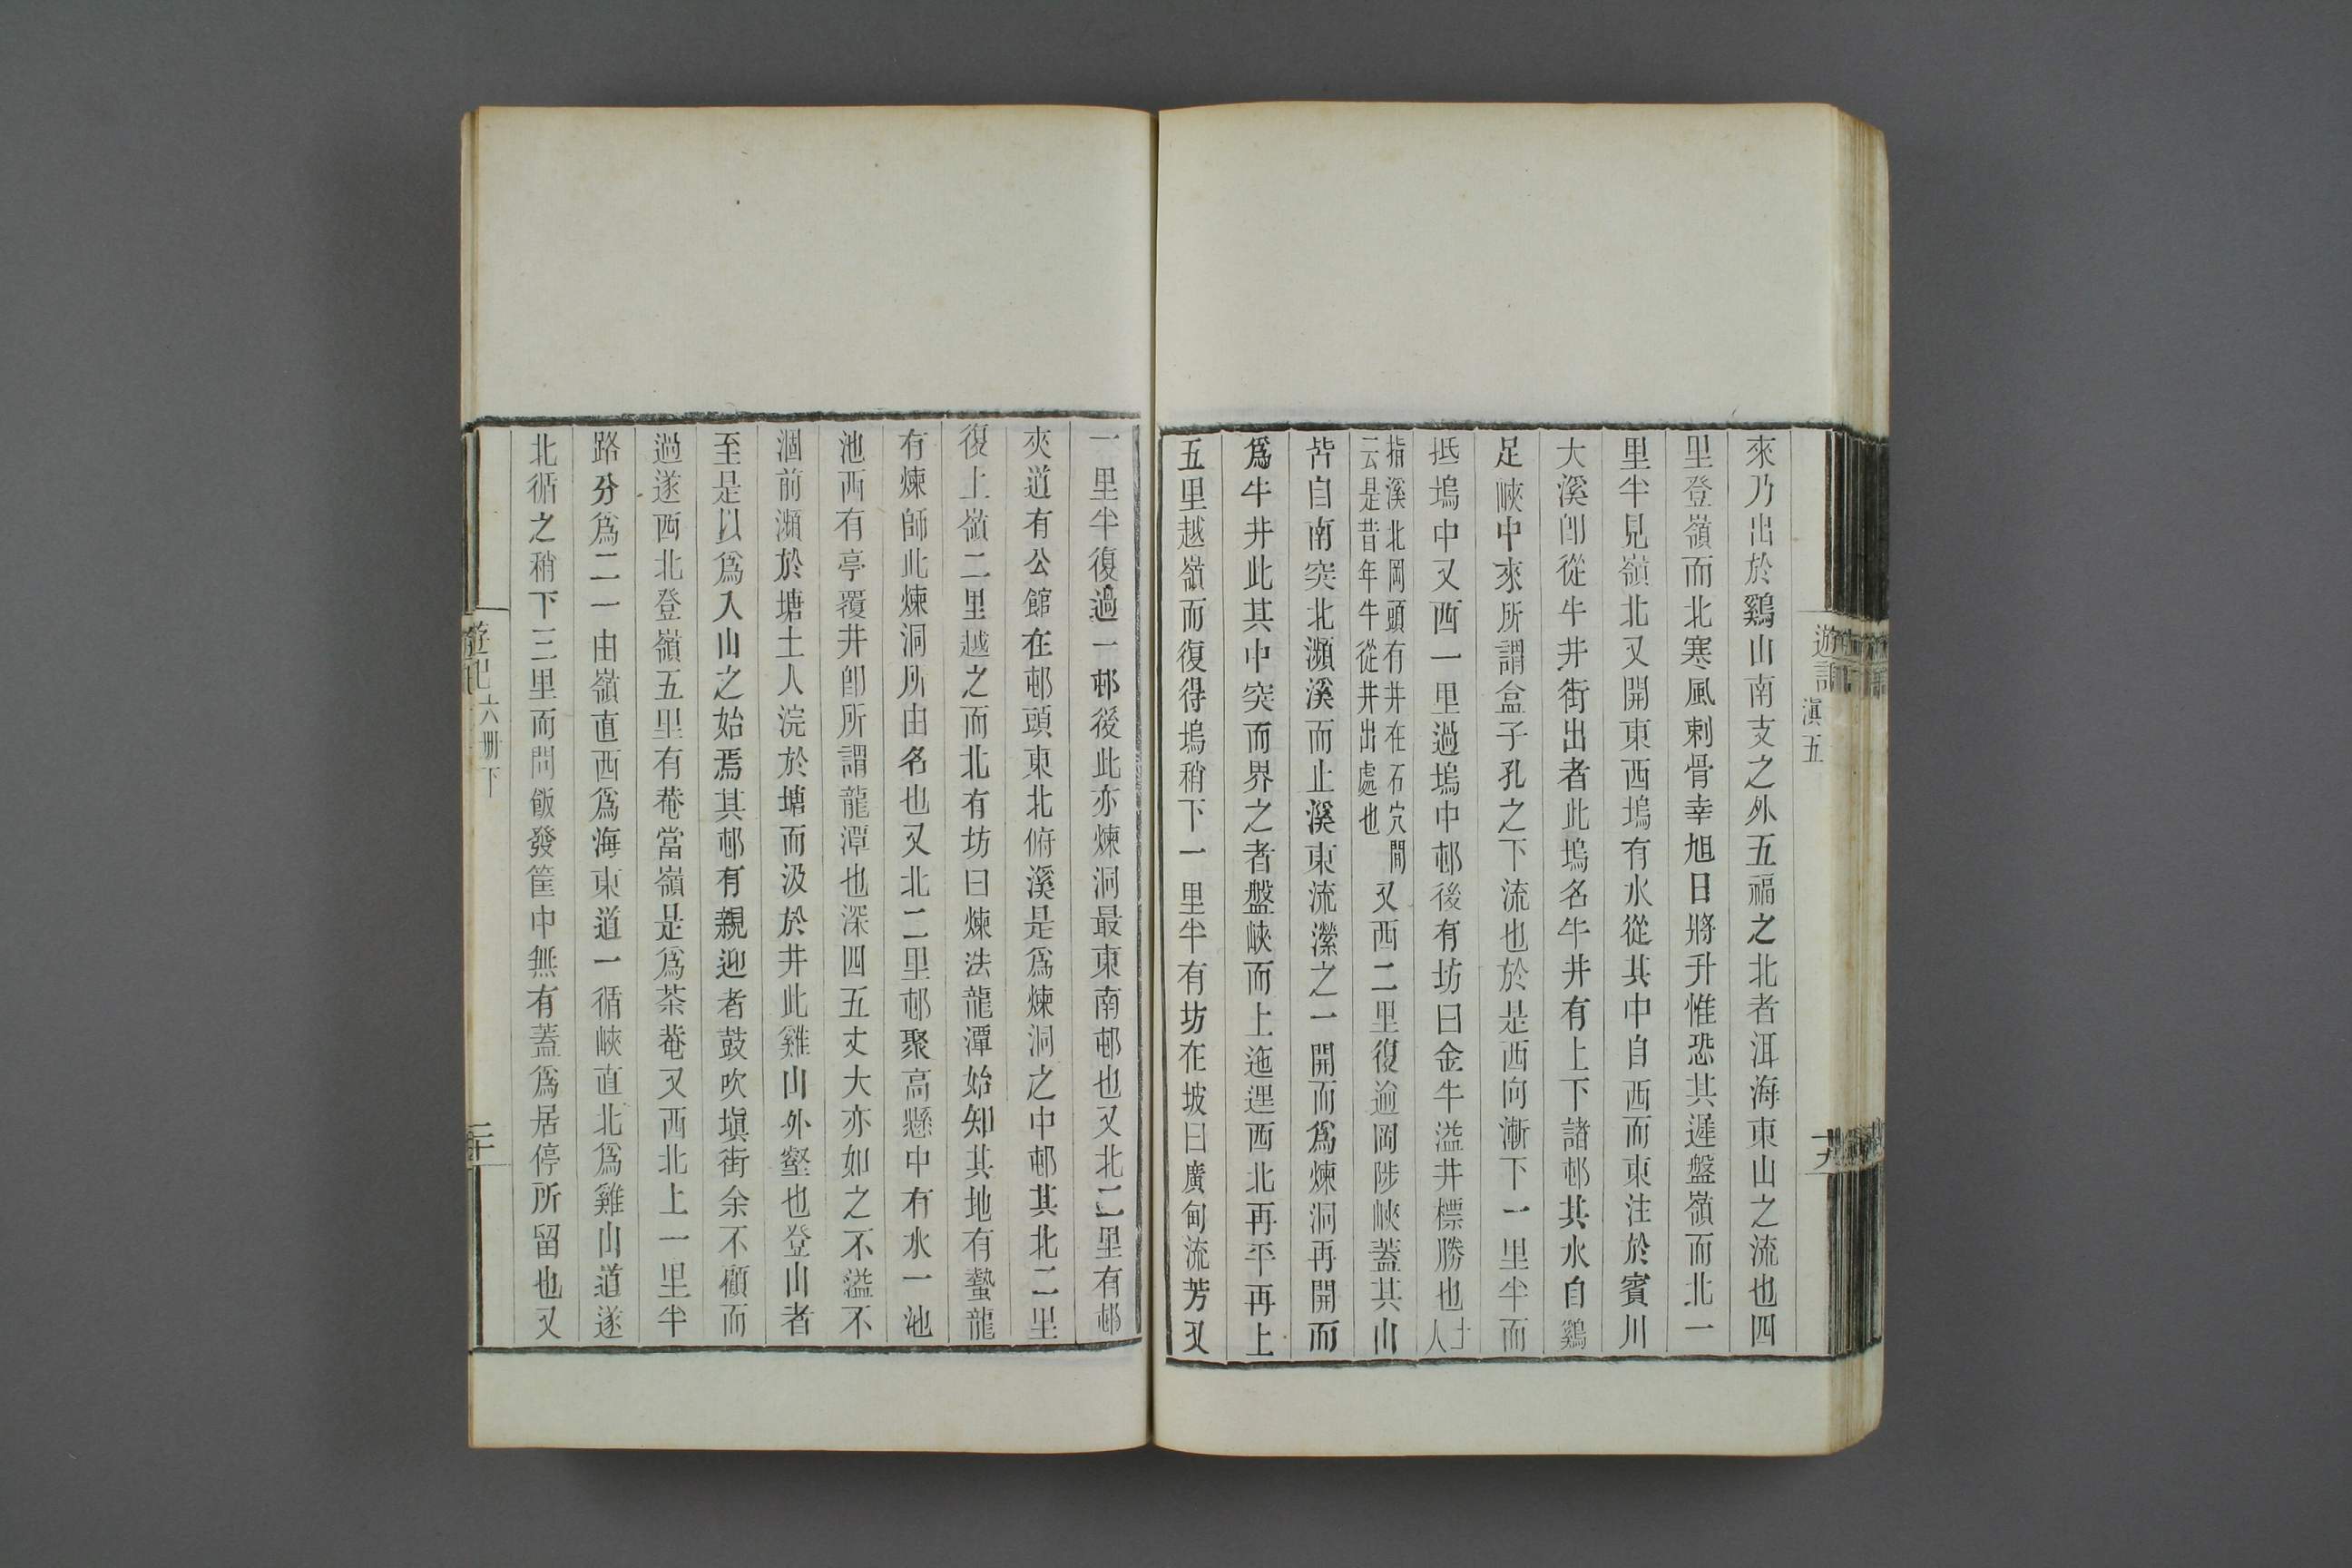 遊記
滇五
十九
來乃出於鷄山南支之外五福之北者洱海東山之流也四
里登嶺而北寒風刺骨幸旭日將升惟恐其遲盤嶺而北一
里半見嶺北又開東西塢有水從其中自西而東注於賓川
大溪卽從牛井街出者此塢名牛井有上下諸邨其水自鷄
足峽中來所謂盒子孔之下流也於是西向漸下一里半而
抵塢中又西一里過塢中邨後有坊曰金牛溢井標勝也土人
指溪北岡頭有井在石穴間
云是昔年牛從井出處也
又西二里復逾岡陟峽蓋其山
皆自南突北瀕溪而止溪東流瀠之一開而爲煉洞再開而
爲牛井此其中突而界之者盤峽而上迤逦西北再平再上
五里越嶺而復得塢稍下一里半有坊在坡曰廣甸流芳又
一里半復過一邨後此亦煉洞最東南邨也又北二里有邨
夾道有公館在邨頭東北俯溪是爲煉洞之中邨其北二里
復上嶺二里越之而北有坊曰煉法龍潭始知其地有蟄龍
有煉師此煉洞所由名也又北二里邨聚高懸中有水一池
池西有亭覆井卽所謂龍潭也深四五丈大亦如之不溢不
涸前瀕於塘土人浣於塘而汲於井此雞山外壑也登山者
至是以爲入山之始焉其邨有親迎者鼓吹塡街余不顧而
過遂西北登嶺五里有菴當嶺是爲茶菴又西北上一里半
路分爲二一由嶺直西爲海東道一循峽直北爲雞山道遂
北循之稍下三里而問飯發筐中無有蓋爲居停所留也又
遊記
六册下
二十